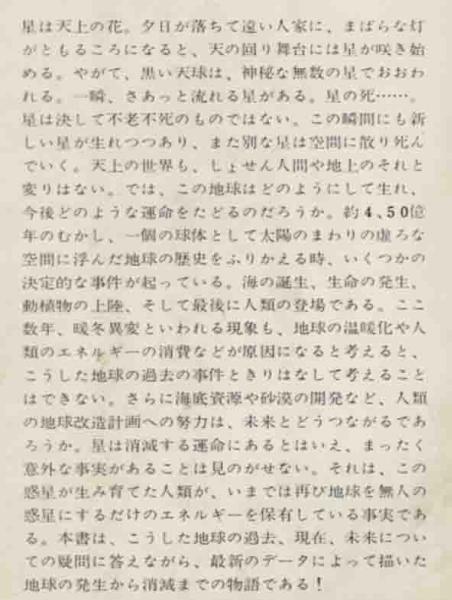 星は天上の花。夕日が落ちて遠い人家に、まばらな灯
がともるころになると、天の回り舞台には星が咲き始
める。やがて、黒い天球は、神秘な無数の星でおおわ
れる。一瞬、さあっと流れる星がある。星の死……。
星は決して不老不死のものではない。この瞬間にも新
しい星が生れつつあり、また別な星は空間に散り死ん
でいく。天上の世界も、しょせん人間や地上のそれと
変りはない。では、この地球はどのようにして生れ、
今後どのような運命をたどるのだろうか。約4、50億
年のむかし、一個の球体として太陽のまわりの虚ろな
空間に浮んだ地球の歴史をふりかえる時、いくつかの
決定的な事件が起っている。海の誕生、生命の発生、
動植物の上陸、そして最後に人類の登場である。ここ
数年、暖冬異変といわれる現象も、地球の温暖化や人
類のエネルギーの消費などが原因になると考えると、
こうした地球の過去の事件ときりはなして考えること
はできない。さらに海底資源や砂漠の開発など、人類
の地球改造計画への努力は、未来とどうつながるであ
ろうか。星は消滅する運命にあるとはいえ、まったく
意外な事実があることは見のがせない。それは、この
惑星が生み育てた人類が、いまでは再び地球を無人の
惑星にするだけのエネルギーを保有している事実であ
る。本書は、こうした地球の過去、現在、未来につい
ての疑問に答えながら、最新のデータによって描いた
地球の発生から消滅までの物語である！